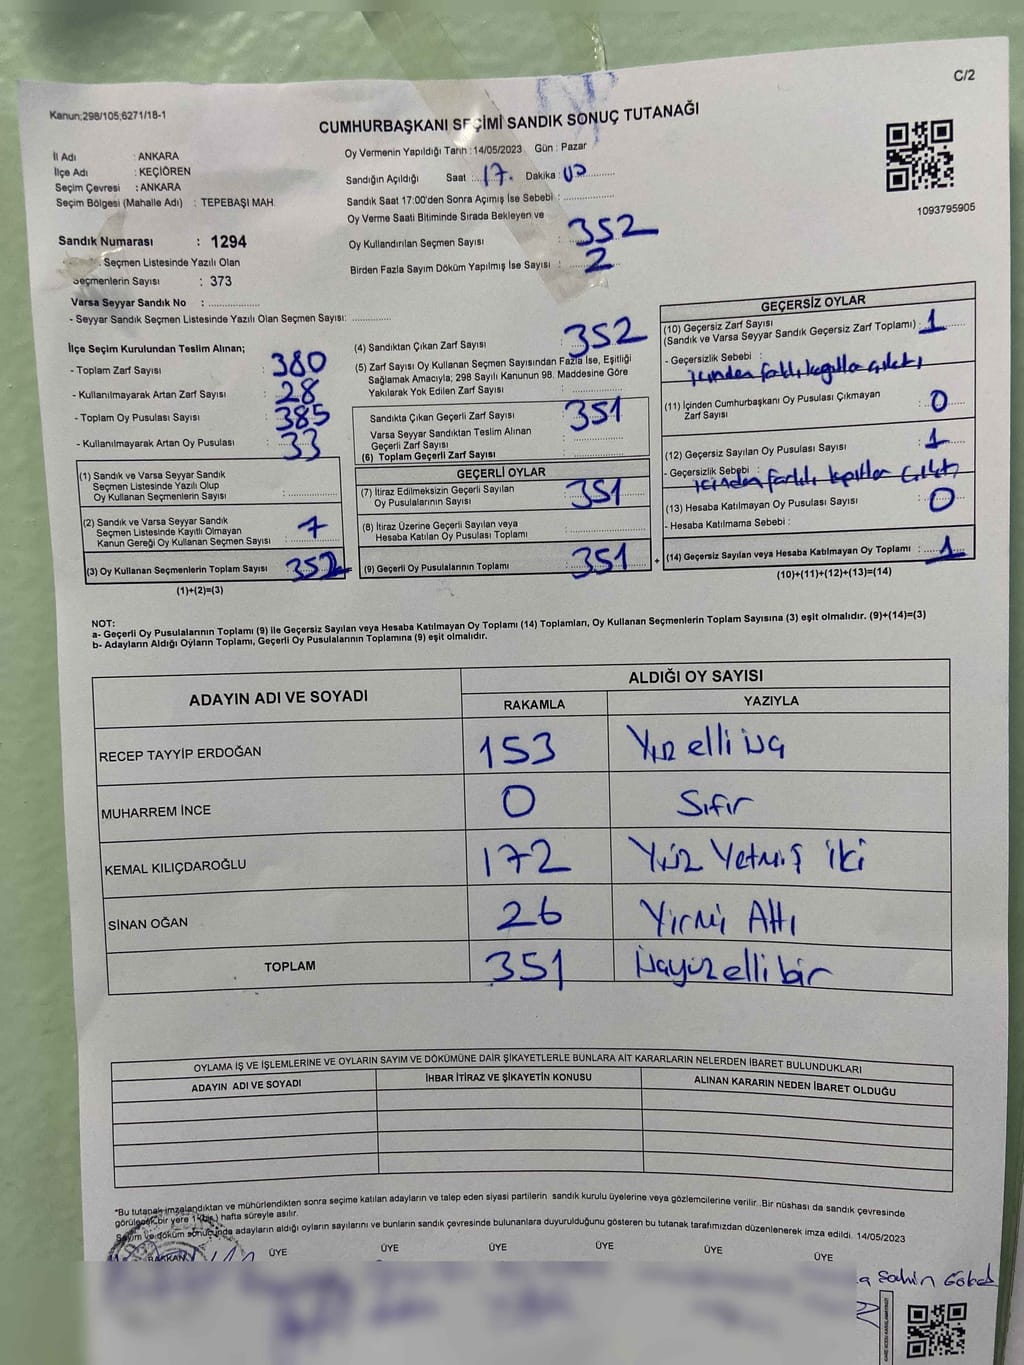 C/2
Kanun;298/105;6271/18-1
CUMHURBAŞKANI SEÇİMİ SANDIK SONUÇ TUTANAĞI
İl Adı : ANKARA
İlçe Adı : KEÇİÖREN
Seçim Çevresi : ANKARA
Seçim Bölgesi (Mahalle Adı) : TEPEBAŞI MAH.
Sandık Numarası : 1294
Seçmen Listesinde Yazılı Olan
Seçmenlerin Sayısı : 373
Varsa Seyyar Sandık No : ..............
- Seyyar Sandık Seçmen Listesinde Yazılı Olan Seçmen Sayısı: ............
Oy Vermenin Yapıldığı Tarih : 14/05/2023 Gün : Pazar
Sandığın Açıldığı Saat : 17. Dakika : 00
Sandık Saat 17:00'den Sonra Açımış İse Sebebi : ..............
Oy Verme Saati Bitiminde Sırada Bekleyen ve
Oy Kullandırılan Seçmen Sayısı 352
Birden Fazla Sayım Döküm Yapılmış İse Sayısı : 2
1093795905
İlçe Seçim Kurulundan Teslim Alınan;
- Toplam Zarf Sayısı : 380
- Kullanılmayarak Artan Zarf Sayısı : 28
- Toplam Oy Pusulası Sayısı : 385
- Kullanılmayarak Artan Oy Pusulası : 33
(1) Sandık ve Varsa Seyyar Sandık
Seçmen Listesinde Yazılı Olup
Oy Kullanan Seçmenlerin Sayısı : ..............
(2) Sandık ve Varsa Seyyar Sandık
Seçmen Listesinde Kayıtlı Olmayan
Kanun Gereği Oy Kullanan Seçmen Sayısı : 7
(3) Oy Kullanan Seçmenlerin Toplam Sayısı : 352
(1)+(2)=(3)
(4) Sandıktan Çıkan Zarf Sayısı : 352
(5) Zarf Sayısı Oy Kullanan Seçmen Sayısından Fazla İse, Eşitliği
Sağlamak Amacıyla; 298 Sayılı Kanunun 98. Maddesine Göre
Yakılarak Yok Edilen Zarf Sayısı : ..............
Sandıkta Çıkan Geçerli Zarf Sayısı : 351
Varsa Seyyar Sandıktan Teslim Alınan
Geçerli Zarf Sayısı : ..............
(6) Toplam Geçerli Zarf Sayısı : ..............
GEÇERLİ OYLAR
(7) İtiraz Edilmeksizin Geçerli Sayılan
Oy Pusulalarının Sayısı : 351
(8) İtiraz Üzerine Geçerli Sayılan veya
Hesaba Katılan Oy Pusulası Toplamı : ..............
(9) Geçerli Oy Pusulalarının Toplamı : 351
GEÇERSİZ OYLAR
(10) Geçersiz Zarf Sayısı
(Sandık ve Varsa Seyyar Sandık Geçersiz Zarf Toplamı) : 1
- Geçersizlik Sebebi :
içinden farklı çıktı
(11) İçinden Cumhurbaşkanı Oy Pusulası Çıkmayan
Zarf Sayısı : 0
(12) Geçersiz Sayılan Oy Pusulası Sayısı : 1
- Geçersizlik Sebebi :
içinden farklı çıktı
(13) Hesaba Katılmayan Oy Pusulası Sayısı : 0
- Hesaba Katılmama Sebebi :
+ (14) Geçersiz Sayılan veya Hesaba Katılmayan Oy Toplamı : 1
(10)+(11)+(12)+(13)=(14)
NOT:
a- Geçerli Oy Pusulalarının Toplamı (9) ile Geçersiz Sayılan veya Hesaba Katılmayan Oy Toplamı (14) Toplamları, Oy Kullanan Seçmenlerin Toplam Sayısına (3) eşit olmalıdır. (9)+(14)=(3)
b- Adayların Aldığı Oyların Toplamı, Geçerli Oy Pusulalarının Toplamına (9) eşit olmalıdır.
ADAYIN ADI VE SOYADI
ALDIĞI OY SAYISI
RAKAMLA YAZIYLA
RECEP TAYYİP ERDOĞAN 153 Yüz elli üç
MUHARREM İNCE 0 Sıfır
KEMAL KILIÇDAROĞLU 172 Yüz Yetmiş iki
SİNAN OĞAN 26 Yirmi Altı
TOPLAM 351 üçyüz elli bir
OYLAMA İŞ VE İŞLEMLERİNE VE OYLARIN SAYIM VE DÖKÜMÜNE DAİR ŞİKAYETLERLE BUNLARA AİT KARARLARIN NELERDEN İBARET BULUNDUKLARI
ADAYIN ADI VE SOYADI İHBAR İTİRAZ VE ŞİKAYETİN KONUSU ALINAN KARARIN NEDEN İBARET OLDUĞU
*Bu tutanak imzalandıktan ve mühürlendikten sonra seçime katılan adayların ve talep eden siyasi partilerin sandık kurulu üyelerine veya gözlemcilerine verilir. Bir nüshası da sandık çevresinde
görülecek bir yere 1 (bir) hafta süreyle asılır.
Sayım ve döküm sonucunda adayların aldığı oyların sayılarını ve bunların sandık çevresinde bulunanlara duyurulduğunu gösteren bu tutanak tarafımızdan düzenlenerek imza edildi. 14/05/2023
BAŞKAN ÜYE ÜYE ÜYE ÜYE ÜYE ÜYE
Şahin Göbek